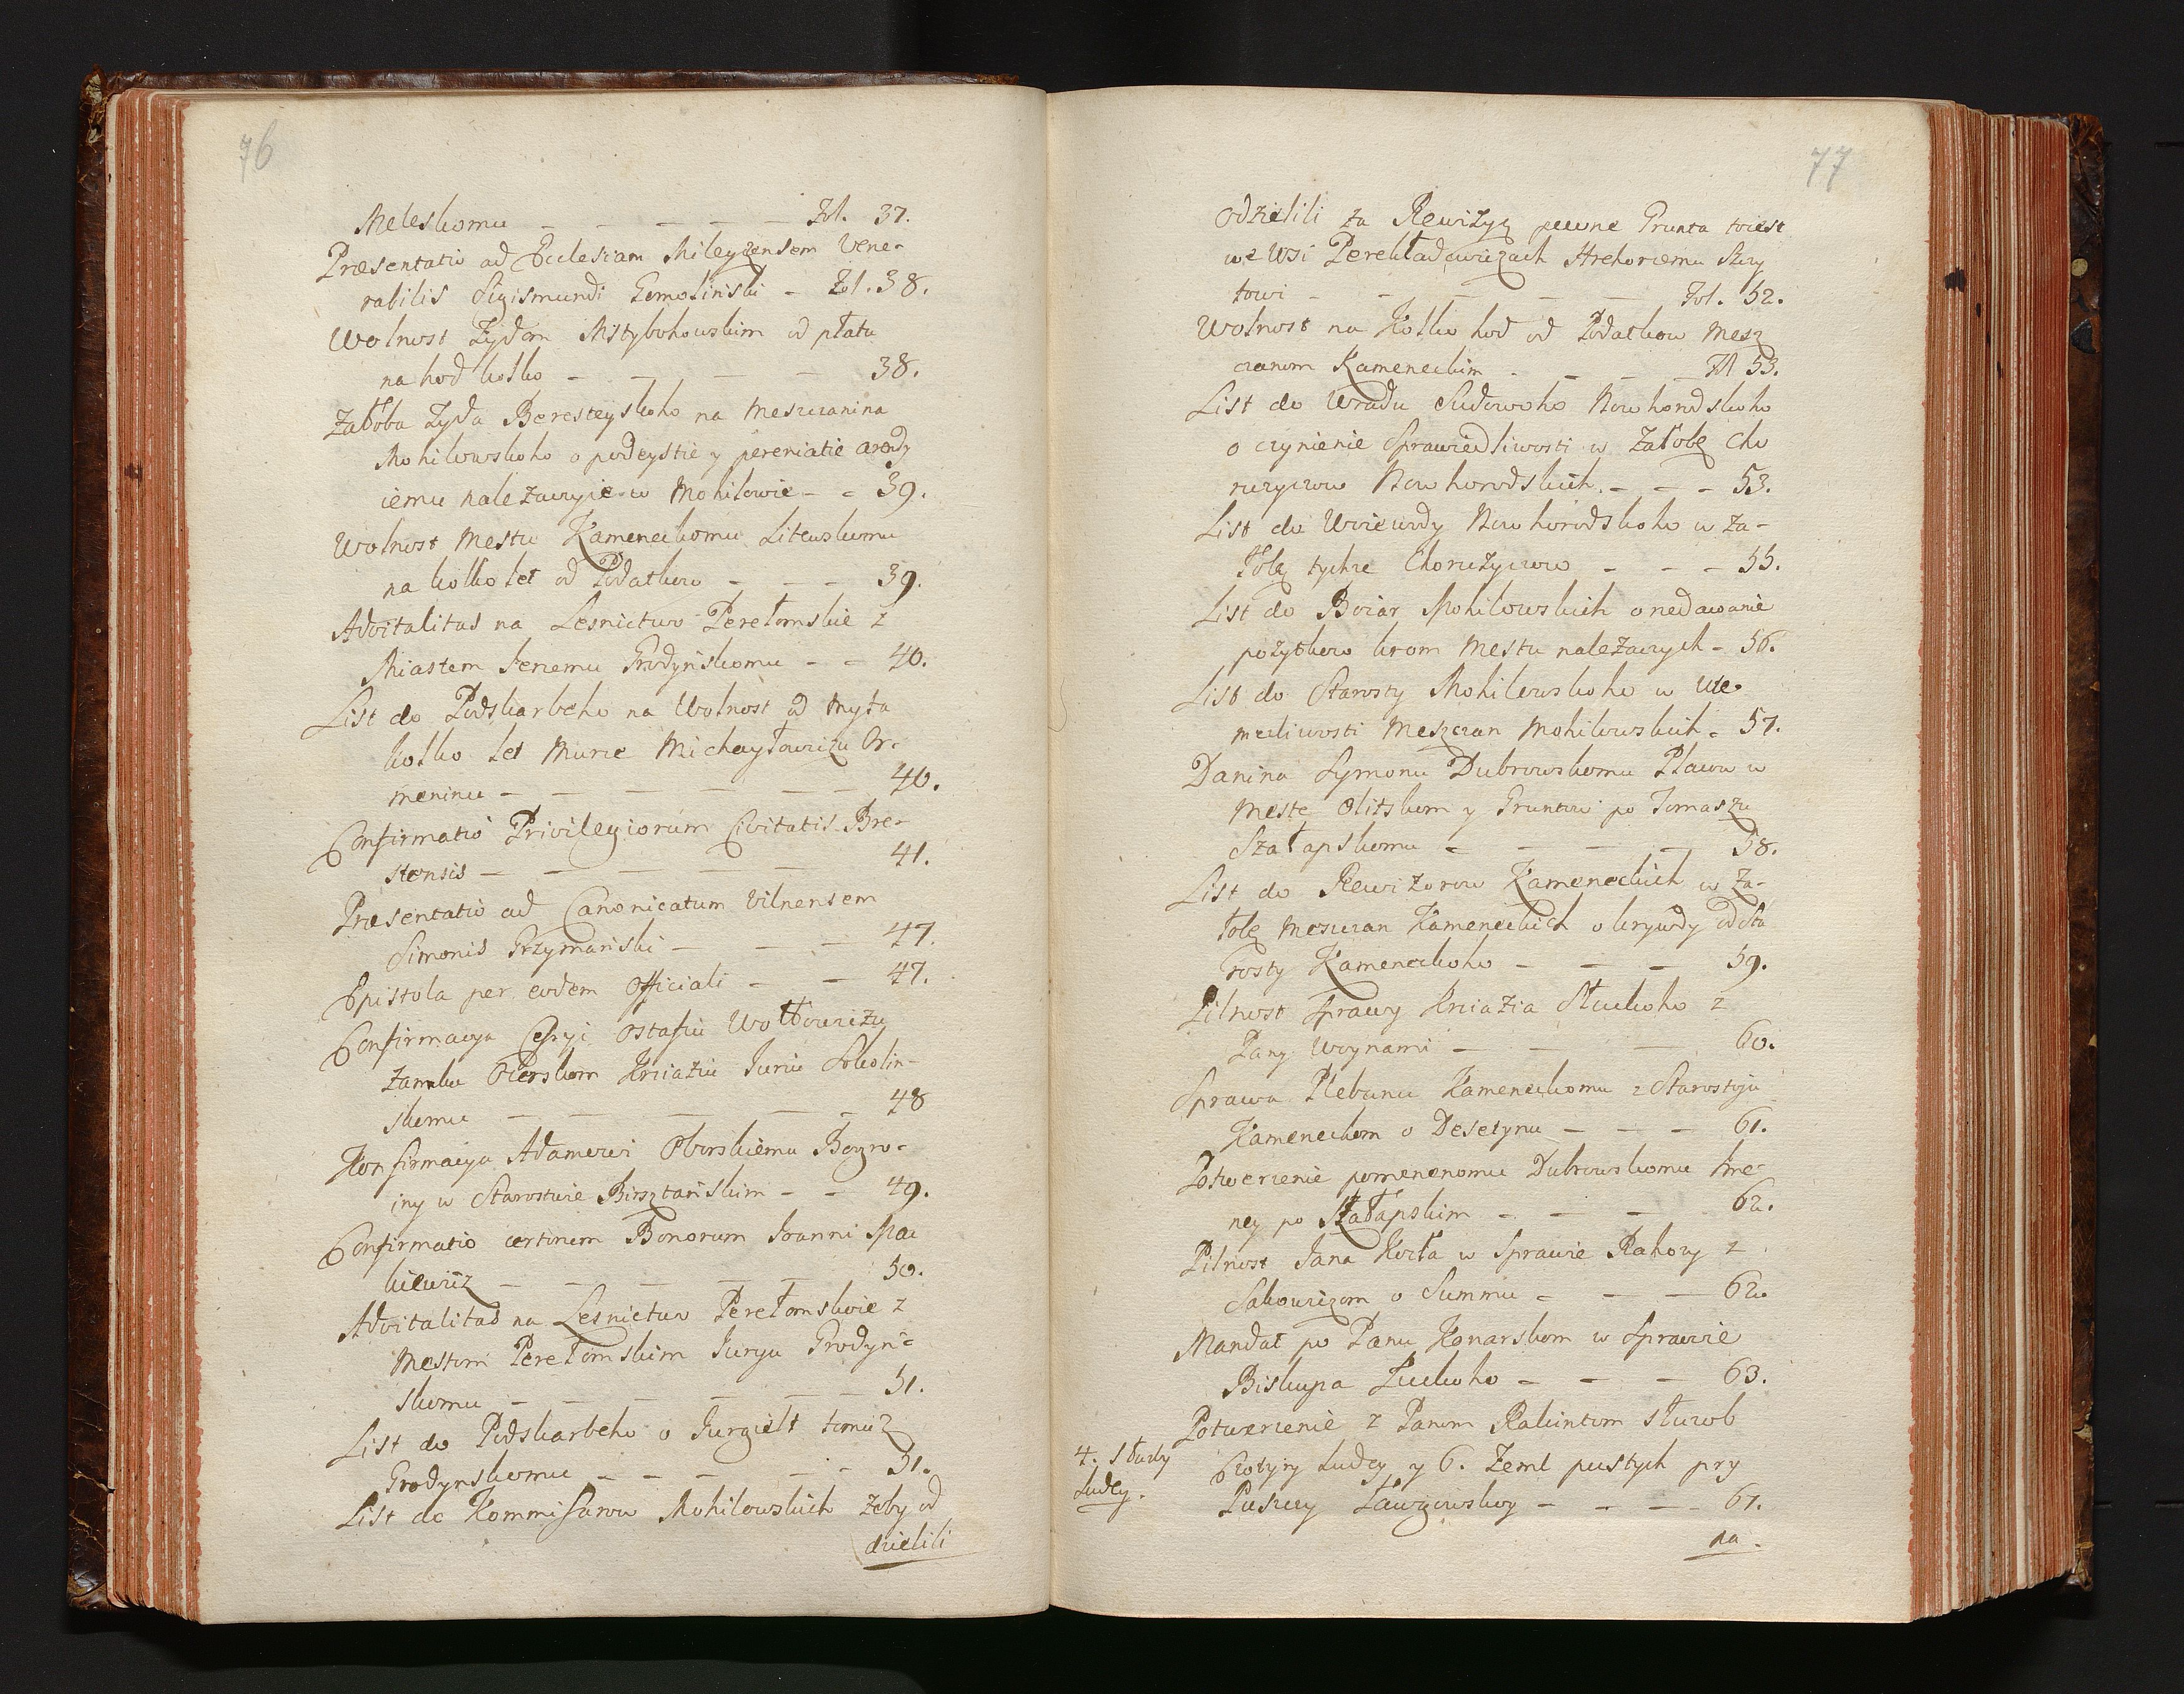 76
Meleskomu - - - - Fol. 37.
Præsentatio ad Ecclesiam Mileyzensem Vene-
rabilis Sigismundi Gemosinski - Fol. 38.
Wolnost Żydom Mstybohowskim od płatu
na hod kolko - - - - 38.
Załoba Żyda Beresteyskoho na meszczanina
Mohilowskoho o podeystie y pereniatie arendy
iemu należaczyie w Mohilowie - - 39.
Wolnost Mestu Kameneckomu Litewskomu
na kolko let od Podatkow - - - 39.
Advitalitas na Lesnictwo Perełomskie z
Miastem Jeremu Grodyńskomu - - 40.
List do Podskarbeho na Wolnost od myta
kolko let Murie Michayłowiczu Or-
meninu - - - - - - 40.
Confirmatio Privilegiorum Civitatis Bre-
stensis - - - - - 41.
Præsentatio ad Canonicatum Vilnensem
Simonis Grzymański - - - 47.
Epistola per eodem Officiali - - 47.
Confirmacya Cessyi Ostafiu Wołłowiczu
Zamku Orerskom Kniaziu Juriu Sokolin-
skomu - - - - - 48
Konfirmacya Adamowi Oborskiemu Bogro-
iny w Starostwie Birsztańskim - - 49.
Confirmatio certorum Bonorum Joanni Mac
kiewicz - - - - - 50.
Advitalitas na Lesnictwo Perełomskoie z
Mestom Perełomskim Juryu Grodyn-
skomu - - - - - 51.
List do Podskarbeho o Jurgielt tomuż
Grodynskomu - - - - - 51.
List do Kommissarow Mohilowskich żeby od
dzielili
77
odzielili za Rewizyą pewne Grunta toiest
we Wsi Perekładowiczach Hrehoriemu Skry
towi - - - - - Fol. 52.
Wolnost na Kolko hod od Podatkow Mesz
czanom Kameneckim - - - Fol 53.
List do Wradu Sudowoho Nowhorodskoho
o czynienie Sprawiedliwosti w Załobę Cho
rużyczow Nowhorodskich - - - 53.
List do Woiewody Nowhorodskoho w Za-
łobę tychże Chorużyczow - - - 55.
List do Boiar Mohilowskich o nedawanie
pożytkow krom Mestu należaczych - 56.
List do Starosty Mohilowskoho w Ule-
mecliwosti Meszczan Mohilowskich - 57.
Danina Symonu Dubrowskomu Placu w
Meste Olitskom y Gruntow po Tomaszu
Szałapskomu - - - - 58.
List do Rewizorow Kameneckich w Za-
łobę Meszczan Kameneckich o krywdy od Sta
rosty Kameneckoho - - - 59.
Pilnost Sprawy Kniazia Słuckoho z
Pany Woynami - - - 60.
Sprawa Plebanu Kameneckomu z Starostoju
Kameneckom o Desetynu - - - 61.
Potwerzenie pomenenomu Dubrowskomu Ime-
ney po Szałapskim - - - - 62.
Pilnost Jana Kocła w Sprawie Rahozy z
Sakowiczom o Summu - - - 62.
Mandat po Panu Konarskom w Sprawie
Biskupa Łuckoho - - - 63.
Potwerzenie z Panom Rakintom słuzob
4. Służby
Ludey.
Czotyry Ludey y 6. Zeml pustych pry
Puszczy Ławgowskoy - - - 67.
na.